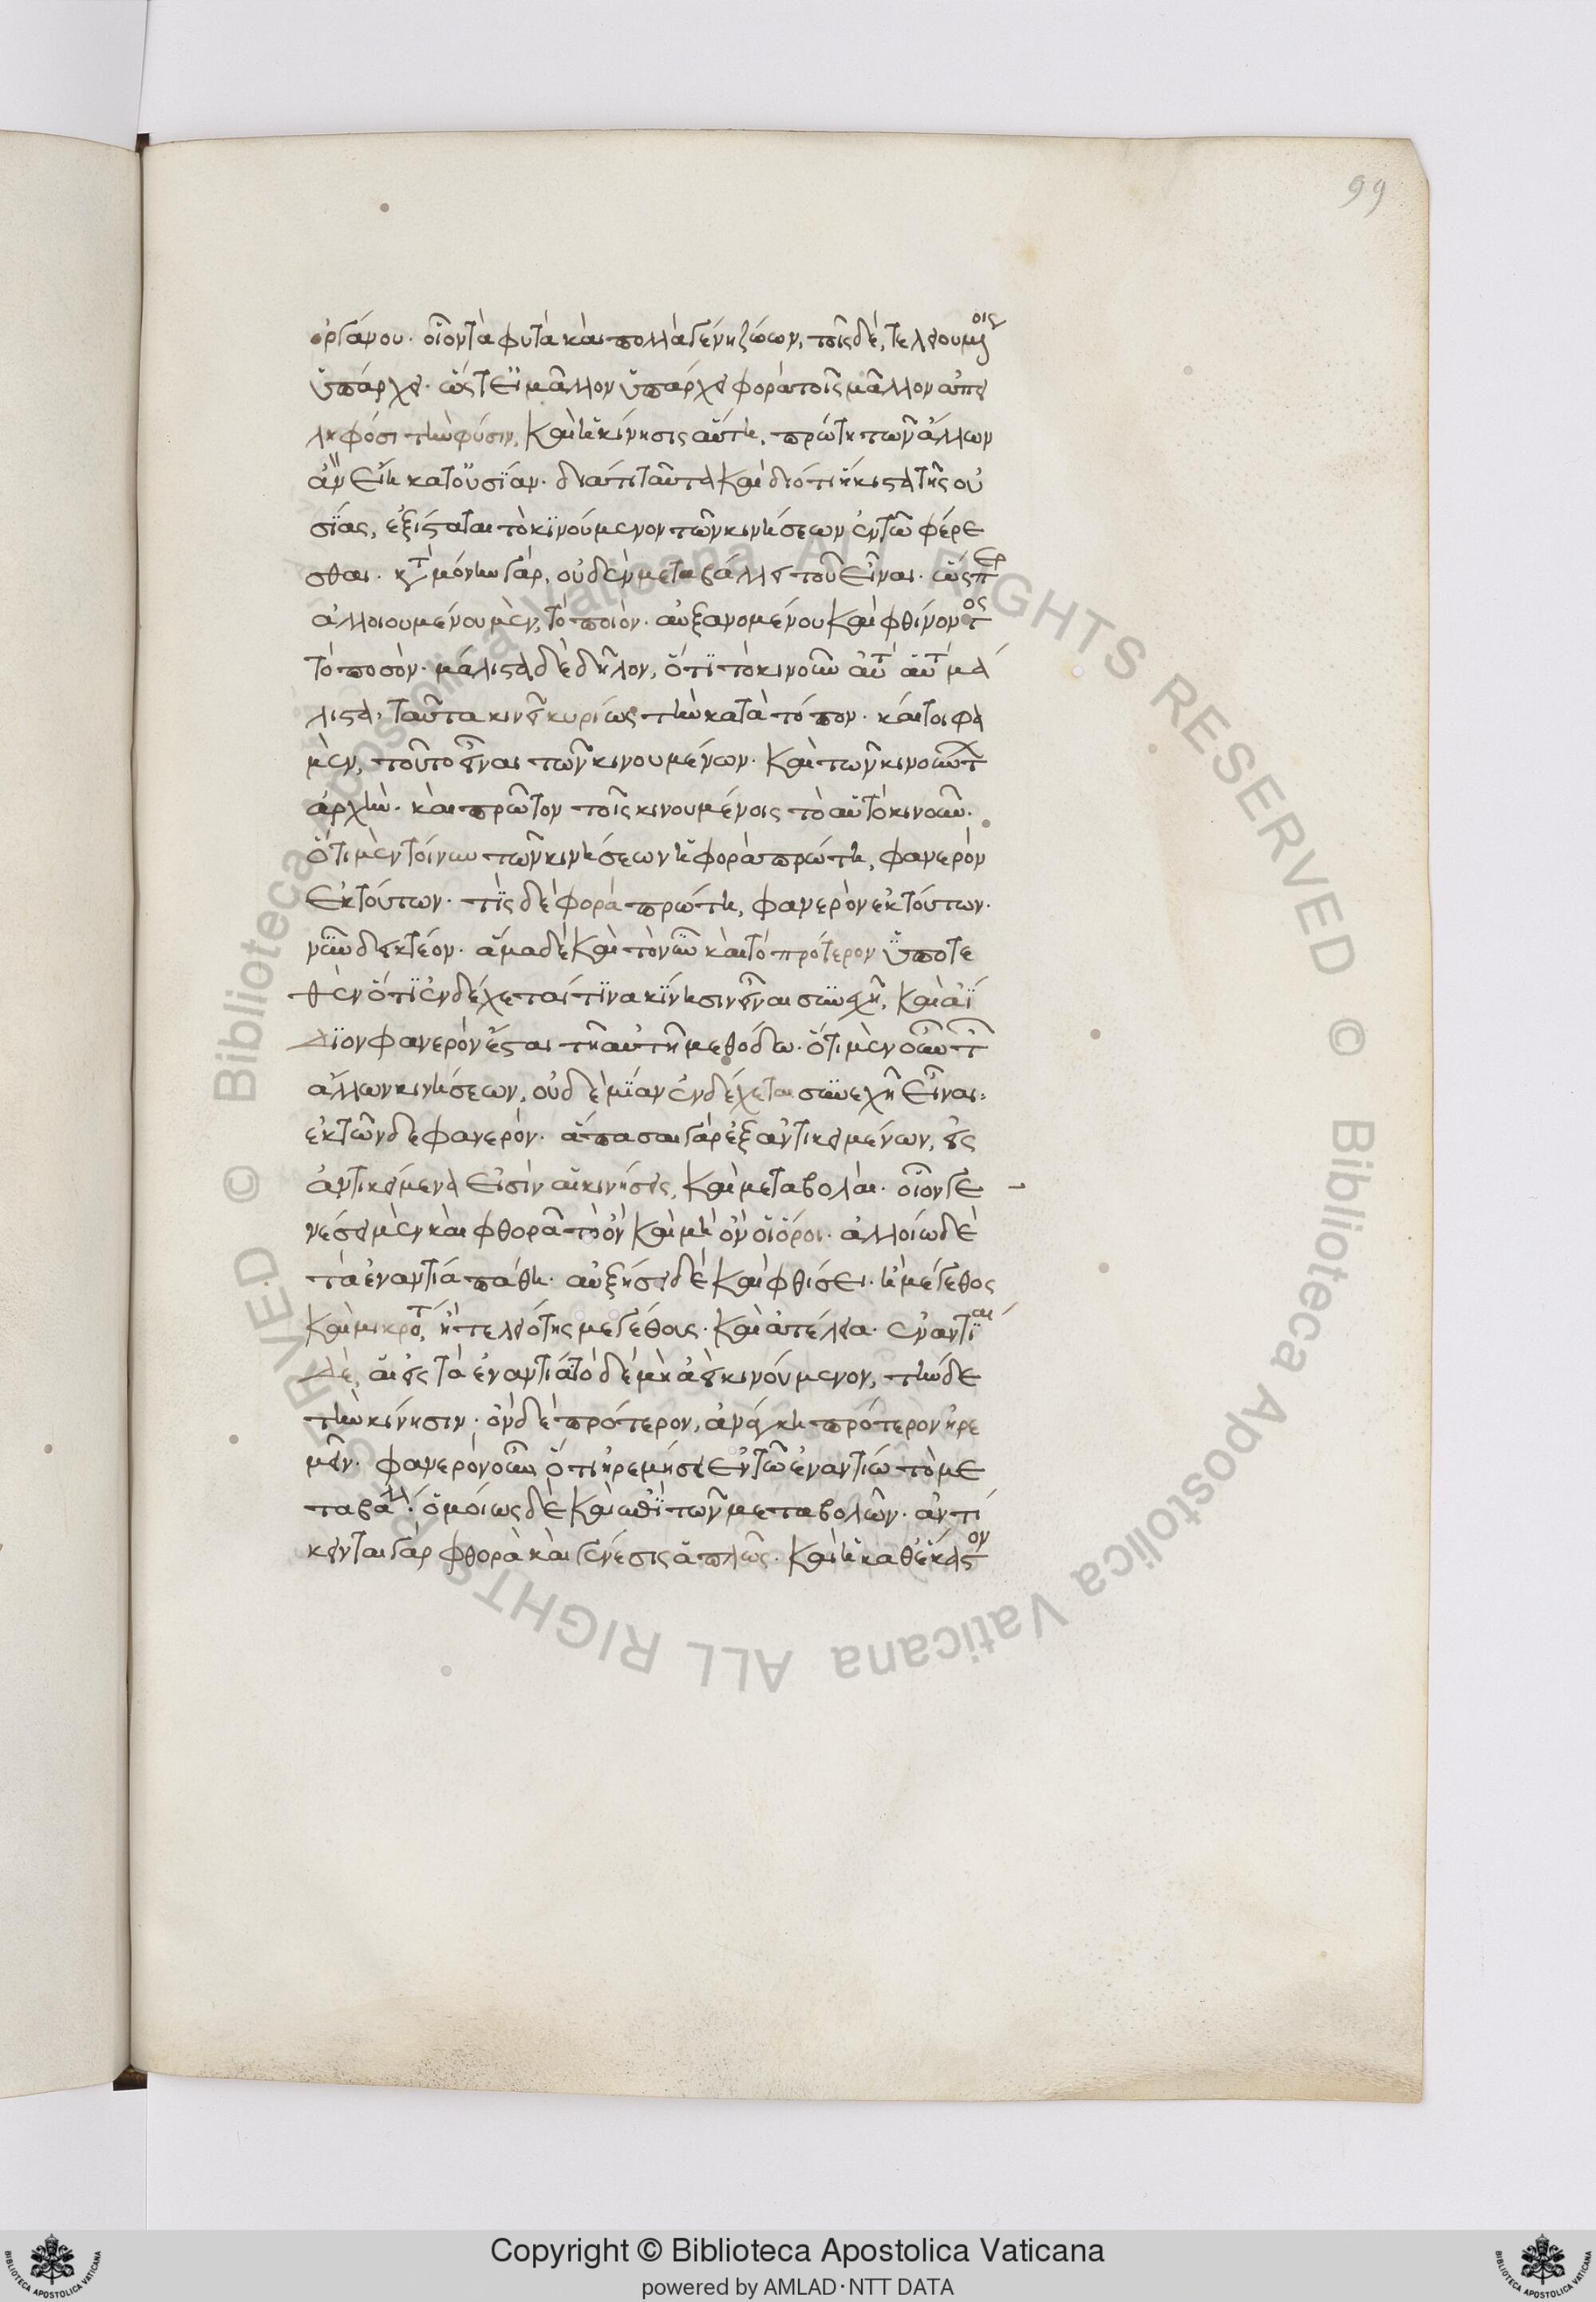 99
ὀργάνου· οἷον τὰ φυτὰ καὶ πολλὰ γένη ζώων, τοῖς δὲ, τελειουμένοις
ὑπάρχει· ὥστ εἰ μᾶλλον ὑπάρχει φορὰ τοῖς μᾶλλον ἀπει
ληφόσι τὴν φύσιν, καὶ ἡ κίνησις αὕτη, πρώτη τῶν ἄλλων
ἂν εἴη κατ οὐσίαν· διά τι ταῦτα καὶ διότι ἥκιστα τῆς οὐ
σίας, ἐξίσταται τὸ κινούμενον τῶν κινήσεων ἐν τῶ φέρε
σθαι· κατὰ μόνην γὰρ, οὐδὲν μεταβάλλει τοῦ εἶναι· ὥσπερ
ἀλλοιουμένου μὲν, τὸ ποιόν· αὐξανομένου καὶ φθίνοντος
τὸ ποσὸν· μάλιστα δὲ δῆλον, ὅτι τὸ κινοῦν αὐτὸ αὑτὸ μά
λιστα, ταῦτα κινεῖ κυρίως τὴν κατὰ τόπον· καίτοι φα
μὲν, τοῦτο εἶναι τῶν κινουμένων· καὶ τῶν κινούντων
ἀρχὴν· καὶ πρῶτον τοῖς κινουμένοις τὸ αὑτὸ κινοῦν·
ὅτι μὲν τοίνυν τῶν κινήσεων ἡ φορὰ πρώτη, φανερὸν
ἐκ τούτων· τίς δὲ φορὰ πρώτη, φανερὸν ἐκ τούτων·
νῦν δεικτέον· ἅμα δὲ καὶ τὸ νῦν καὶ τὸ πρότερον ὑποτε
θὲν ὅτι ἐνδέχεταί τινα κίνησιν εἶναι συνεχῆ, καὶ ἀΐ
διον φανερὸν ἔσται τῆ αὐτῆ μεθόδω· ὅτι μὲν οὖν τῶν
ἄλλων κινήσεων, οὐδεμίαν ἐνδέχεται συνεχῆ εἶναι,
ἐκ τῶνδε φανερὸν· ἅπασαι γὰρ ἐξ ἀντικειμένων, εἰς
ἀντικείμενά εἰσιν αἱ κινήσεις, καὶ μεταβολαὶ· οἷον γε
νέσει μὲν καὶ φθορᾶ τὸ ὂν καὶ μὴ ὂν οἱ ὅροι· ἀλλοιώ δὲ
τὰ ἐναντία πάθη· αὐξήσει δὲ καὶ φθίσει· ἢ μέγεθος
καὶ μικρότης, ἢ τελειότης μεγέθους· καὶ ἀτέλεια· ἐναντίαι
δὲ, αἱ εἰς τὰ ἐναντία τὸ δὲ μὴ ἀεὶ κινούμενον, τήνδε
τὴν κίνησιν· ὂν δὲ πρότερον, ἀνάγκη πρότερον ἠρε
μεῖν· φανερὸν οὖν ὅτι ἠρεμήσει ἐν τῶ ἐναντίω τὸ με
ταβάλλον· ὁμοίως δὲ καὶ ἐπὶ τῶν μεταβολῶν· ἀντί
κεινται γὰρ φθορὰ καὶ γένεσις ἁπλῶς· καὶ ἡ καθέκαστον
Copyright © Biblioteca Apostolica Vaticana
powered by AMLAD·NTT DATA